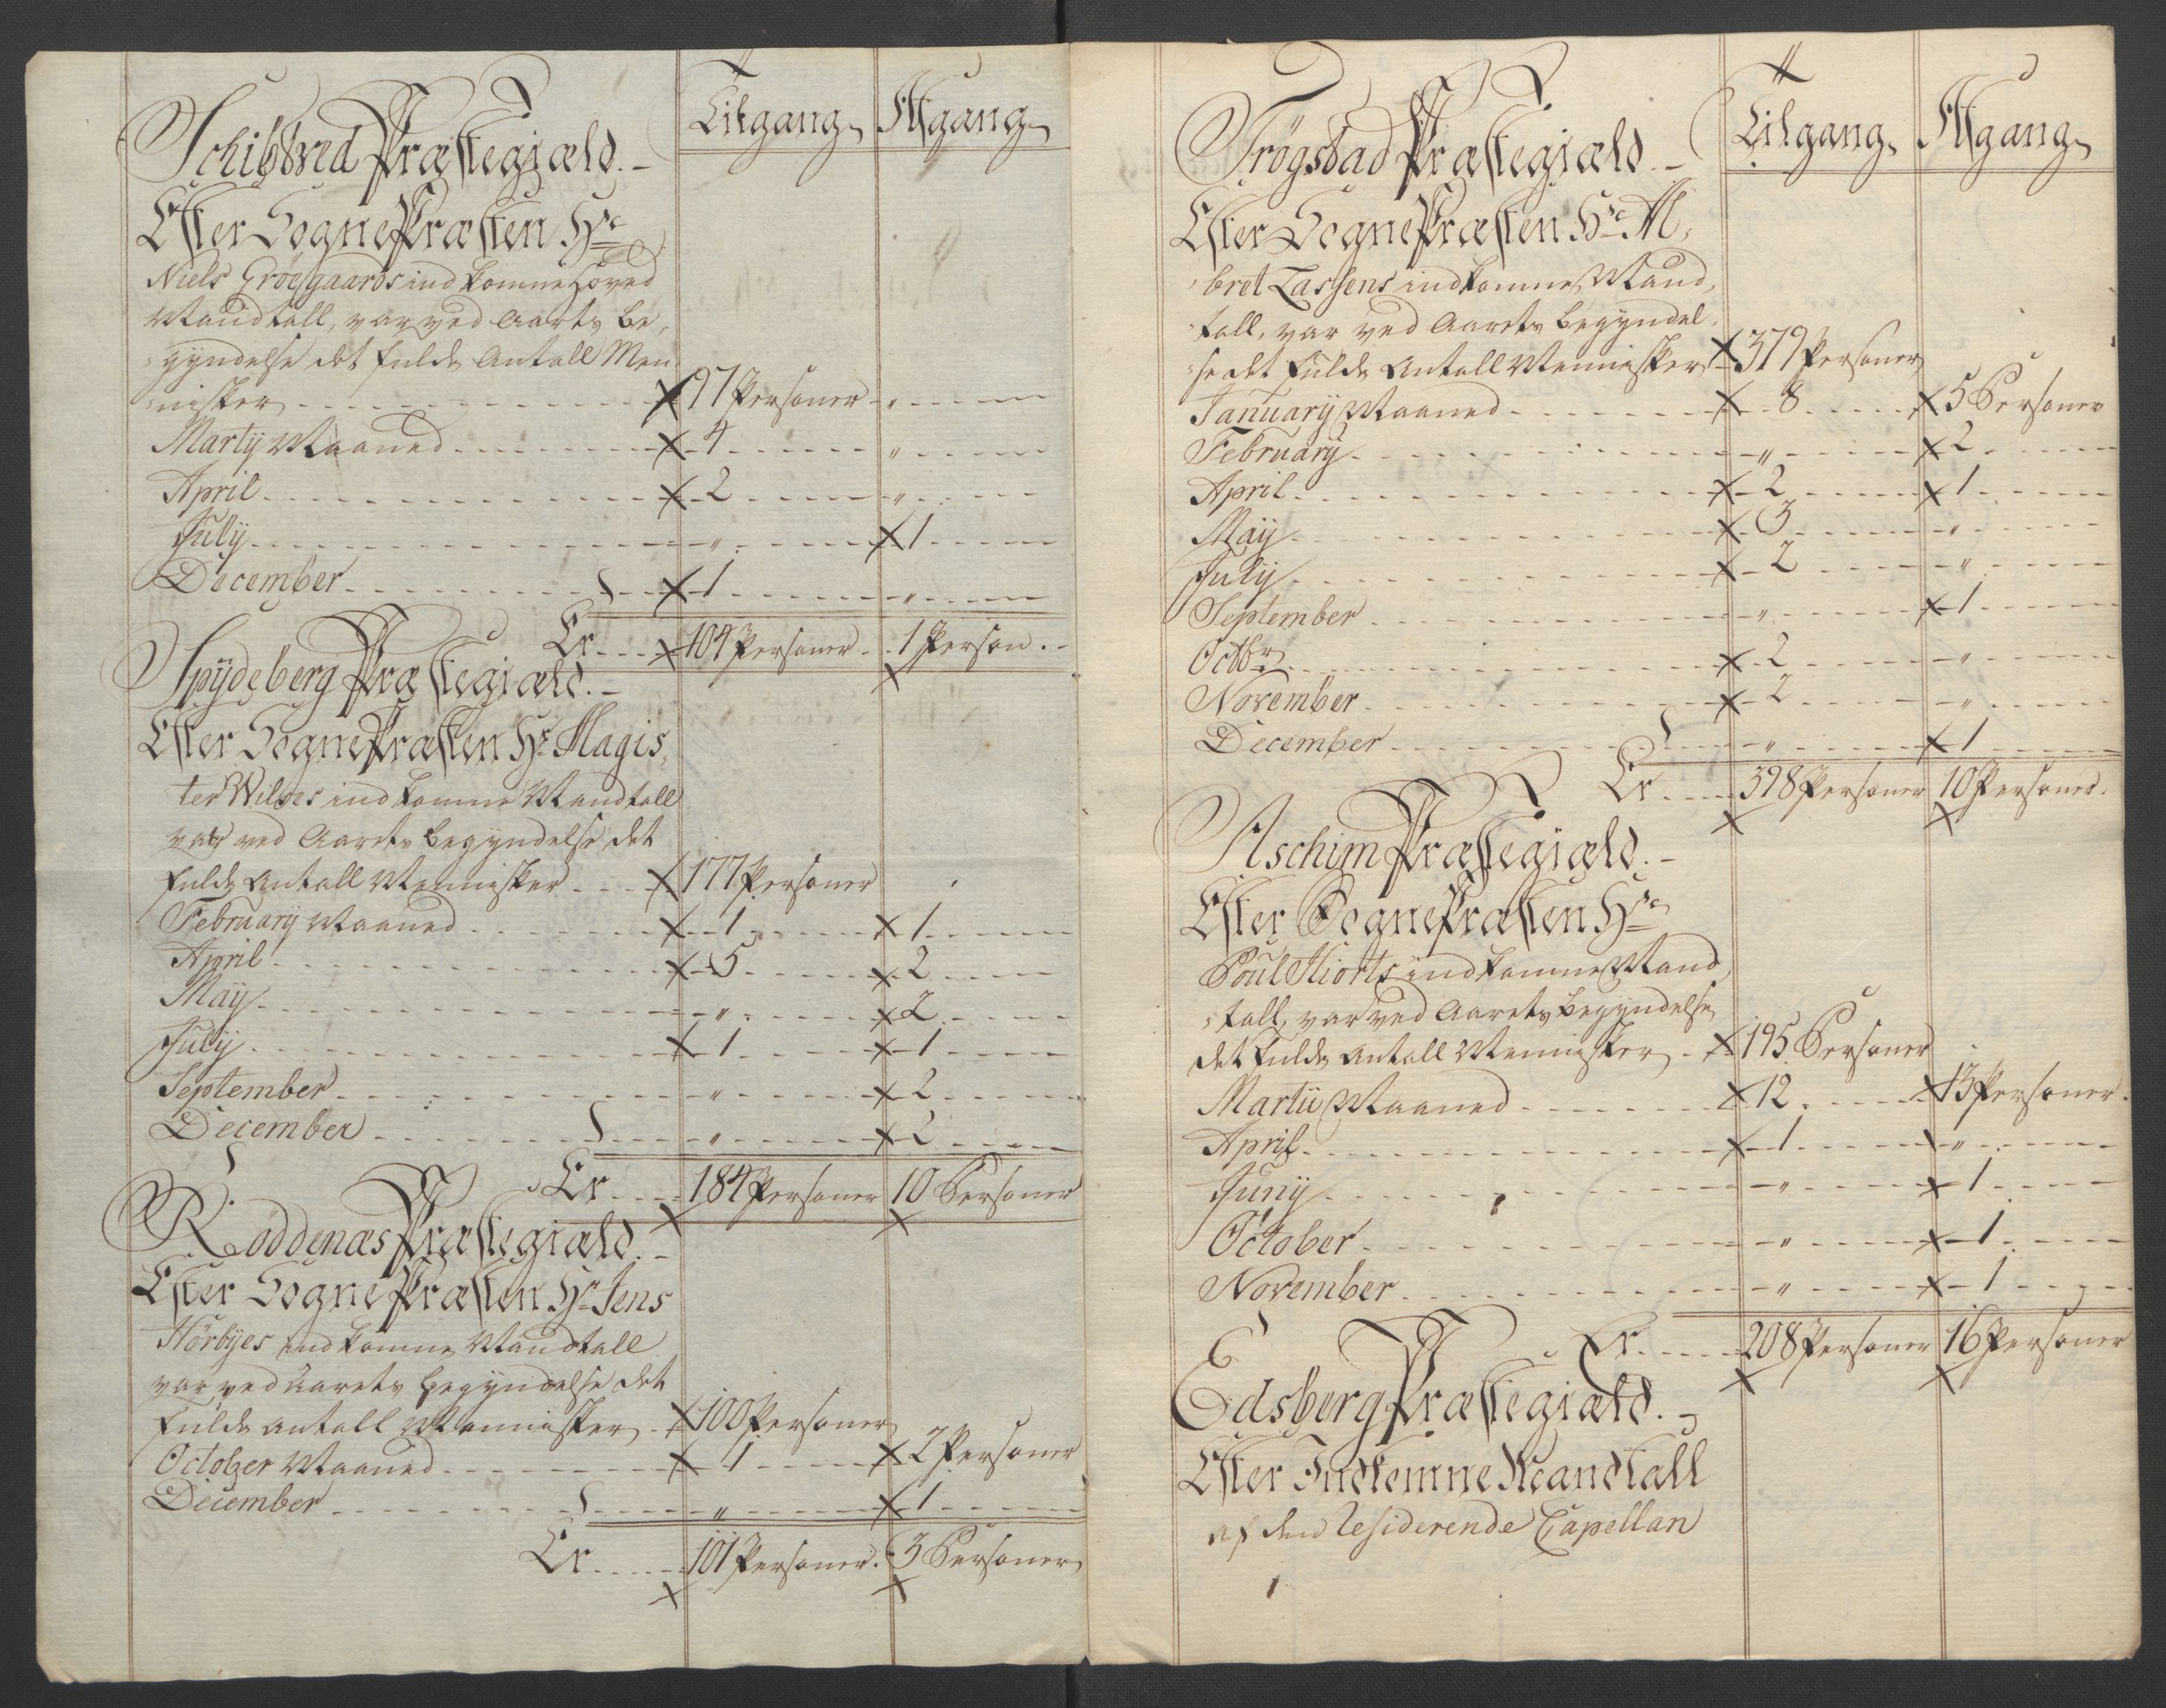 Tilgang Afgang
Schibtved Præstegiæld.
Efter Sogne Præsten Hr
Niels Gröegaards indkomne Hoved
Mandtall, var ved Aarets Be,
gyndelse det fulde Antall Men
nisker 97 Personer "
Martÿ Maaned 4 "
April 2 "
Julÿ " 1
December 1 "
Er 104 Personer 1 Person.
Spÿdeberg Præstegiæld.
Efter Sogne Præsten Hr Magis,
ter Wilses indkomne Mandtall
var ved Aarets Begyndelse det
fulde Antall Mennisker 177 Personer
Februarÿ Maaned 1 1
April 5 2
Maÿ " 2
Julÿ 1 1
September " 2
December " 2
Er 184 Personer 10 Personer
Röddenæs Præstegiæld.
Efter Sogne Præsten Hr Jens
Hörbÿes indkomne Mandtall
var ved Aarets Begÿndelse det
fulde antall Mennisker 100 Personer
October Maaned 1 2 Personer
December " 1
Er 101 Personer. 3 Personer
Tilgang Afgang
Trögstad Præstegiæld.
Efter Sogne Præsten Hr M,
bret Lassens indkomne Mand,
tall, var ved Aarets Begyndel
se det fulde Antall Mennisker 379 Personer
Januarÿ Maaned 8 5 Personer
Februarÿ " 2
April 2 1
Maÿ 3 "
Julÿ 2 "
September " 1
Octbr 2 "
November 2 "
December " 1
Er 398 Personer 10 Personer.
Aschim Præstegiæld.
Efter Sogne Præsten Hr
Poul Hiorts indkomne Mand
tall, var ved Aarets Begyndelse
det fulde Antall Mennisker 195 Personer
Martii Maaned 12 13 Personer.
April 1 "
Junÿ " 1
October " 1
November " 1
Er 208 Personer 16 Personer
Edsberg Præstegiæld.
Efter Indkomne Mandtall
af den Residerende Capellan